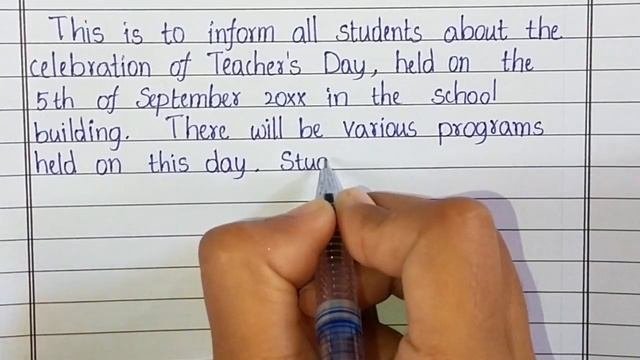 This is to inform all students about the
celebration of Teacher's Day, held on the
5th of September 20xx in the school
building. There will be various programs
held on this day. Stud